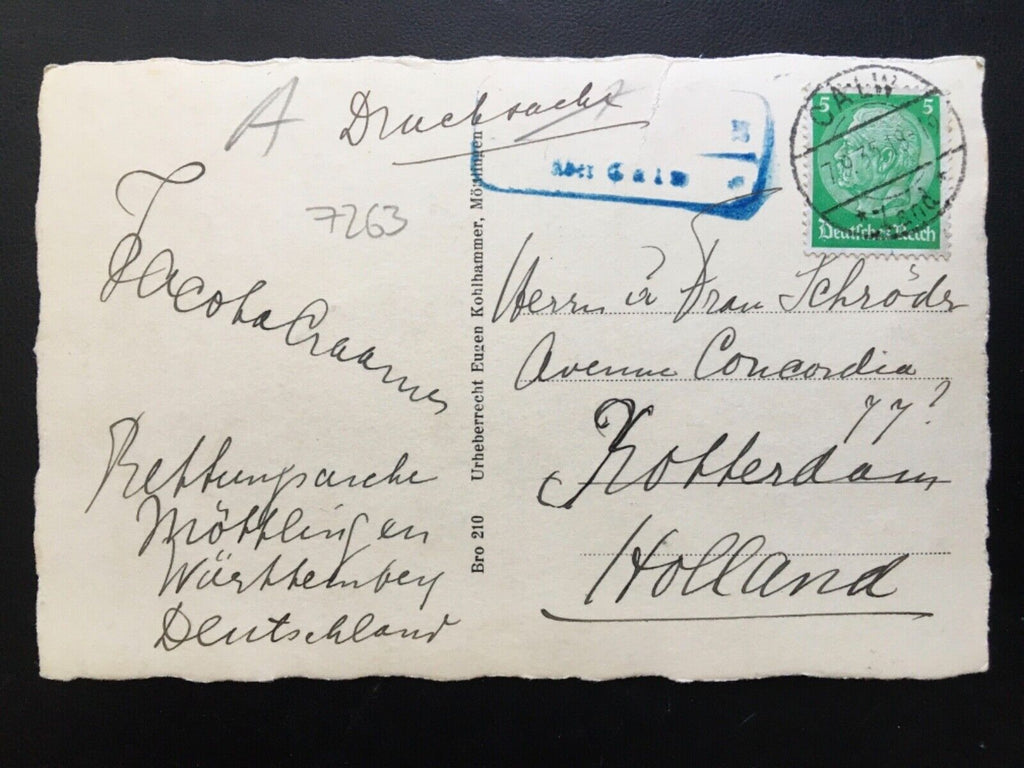 A Drucksache
7263
Jacoba Craamer
Rettungsarche
Möttlingen
Württemberg
Deutschland
Bro 210 Urheberrecht Eugen Kohlhammer, Möttlingen
Calw
CALW
7.9.35
* Land *
5 5
Deutsches Reich
Herrn u Frau Schröder
Avenue Concordia
77?
Rotterdam
Holland